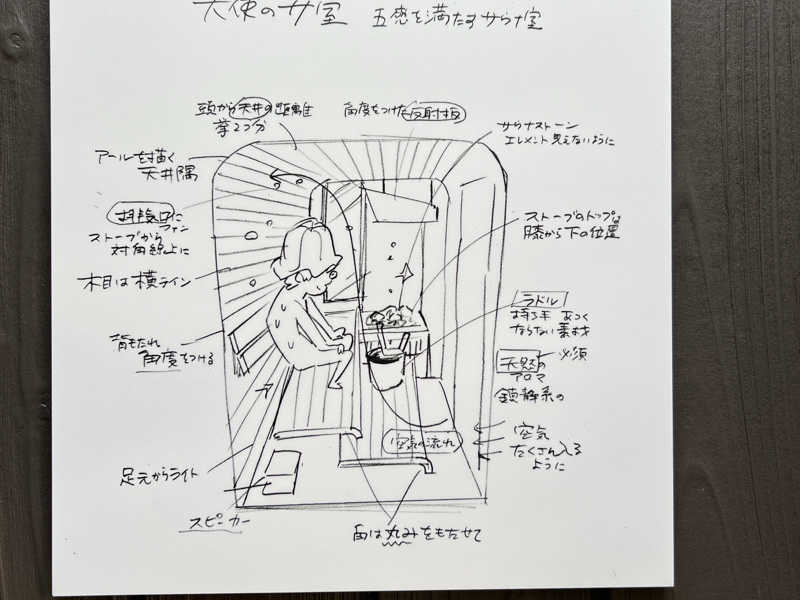 天使のサ室 五感を満たすサウナ室
頭から天井の距離
拳2つ分
角度をつけた反射板
サウナストーン
エレメント見えないように
アールを描く
天井隅
ファン
ストーブから
対角線上に
ストーブのトップは
膝から下の位置
木目は横ライン
ラドル
持ち手 あつく
ならない素材
背もたれ
角度をつける
天然の 必須
アロマ
鎮静系の
空気の流れ
空気
たくさん入る
ように
足元からライト
スピーカー
角は丸みをもたせて